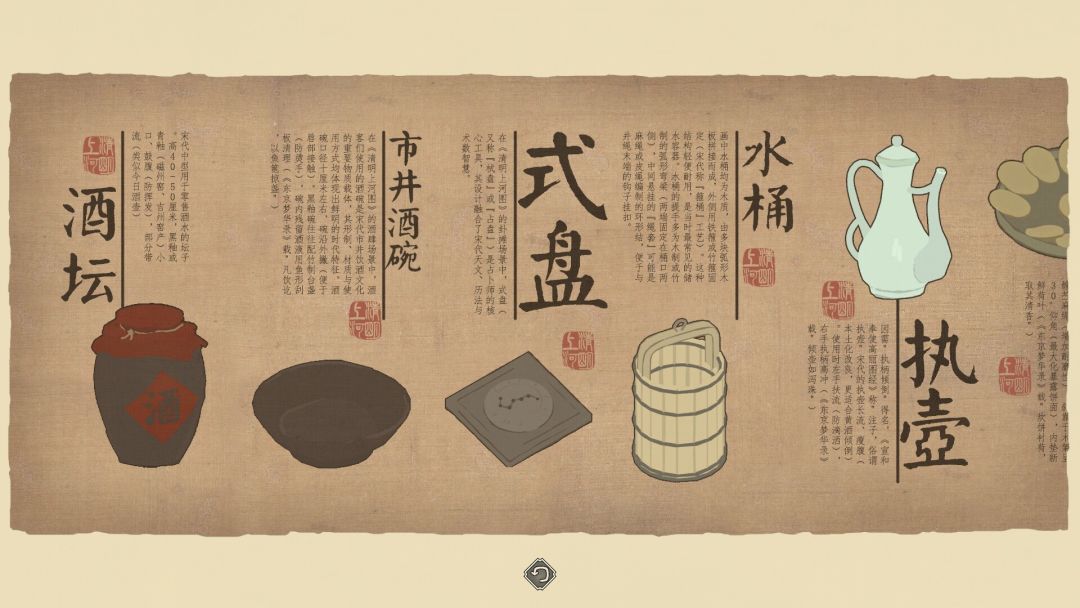 30°仰角（最大化暴露饼面），内垫新
鲜荷叶（《东京梦华录》载，炊饼衬荷，
取其清香"。）
清明上河
执壶
因需"执柄倾倒"得名，《宣和
奉使高丽图经》称"注子"，俗谓
执壶"。宋代的执壶长流、瘦腹（
本土化改良，更适合黄酒倾倒）
。使用时左手扶流（防滴洒），
右手执柄高冲（《东京梦华录》
载，"倾壶如泻珠"。）
清明上河
水桶
画中水桶均为木质，由多块弧形木
板拼接而成，外侧用铁箍或竹箍固
定（宋代称『箍桶』工艺）。这种
结构轻便耐用，是当时最常见的储
水容器。水桶的提手多为木制或竹
制的弧形弯梁（两端固定在桶口两
侧），中间悬挂的『绳套』可能是
麻绳或皮绳编制的环形结，便于与
井绳末端的钩子挂扣。
清明上河
式盘
在《清明上河图》的卦摊场景中，式盘（
又称『栻盘』或『占盘』）是占卜师的核
心工具，其设计融合了宋代天文、历法与
术数智慧。
清明上河
市井酒碗
在《清明上河图》的酒肆场景中，酒
客们使用的酒碗是宋代市井饮酒文化
的重要物质载体，其形制、材质与使
用方式均体现出鲜明的时代特征。酒
碗口径十厘米左右，碗沿外撇（便于
唇部接触）。黑釉碗往往配竹制台盏
（防烫手），碗内残留酒液用鱼形刮
板清理（《东京梦华录》载，凡饮讫
，以鱼篦抠盏。）
清明上河
酒坛
宋代中型用于零售酒水的坛子
。高40-50厘米，黑釉或
青釉（磁州窑，吉州窑产）小
口、鼓腹（防挥发），部分带
流（类似今日酒壶）
清明上河
酒